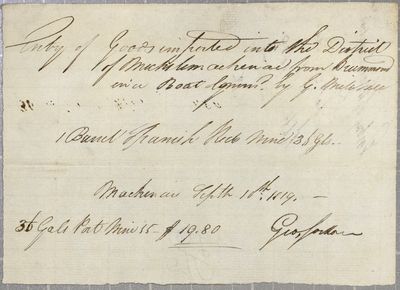 Entry of Goods imported into the District
of Michilimackinac from Drummond
in a Boat Comm.d by G.
1 Barrel Spanish Red Wine 36 Gls.
Mackinac Septr 10th. 1819. —
36 Gals Pat Wine 15 - $ 19.80
Geo